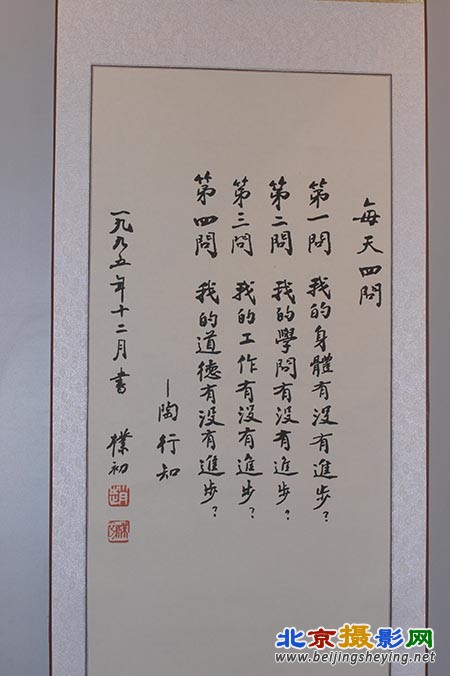 每天四問
第一問 我的身體有沒有進步？
第二問 我的學問有沒有進步？
第三問 我的工作有沒有進步？
第四問 我的道德有沒有進步？
—陶行知
一九九五年十二月書 樸初
北京摄影网
www.beijingsheying.net